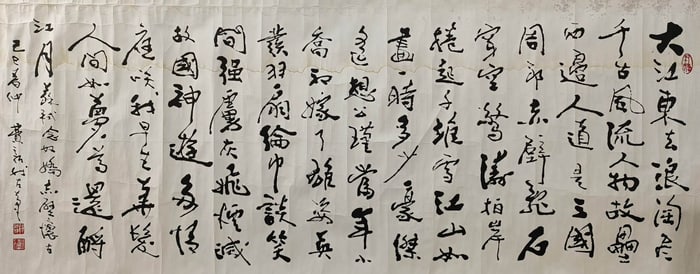 大江東去浪淘盡
千古風流人物故壘
西邊人道是三國
周郎赤壁亂石
穿空驚濤拍岸
捲起千堆雪江山如
畫一時多少豪傑
遙想公瑾當年小
喬初嫁了雄姿英
發羽扇綸巾談笑
間強虜灰飛煙滅
故國神遊多情
應笑我早生華髮
人間如夢一尊還酹
江月 蘇軾念奴嬌赤壁懷古
己巳春仲